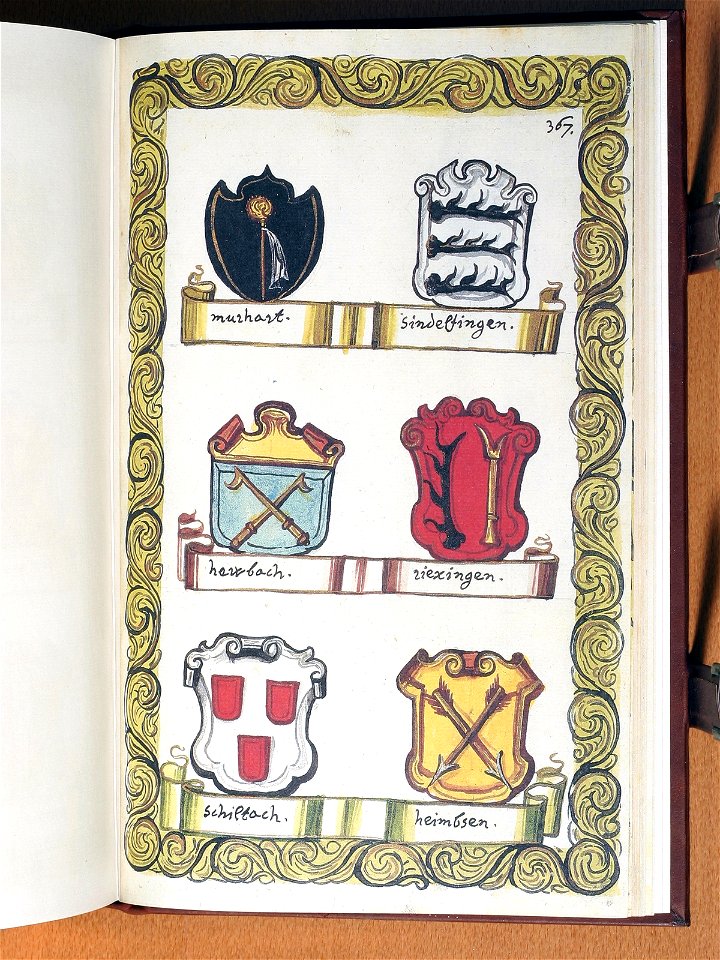 367.
murhart.
sindelfingen.
hewbach.
riexingen.
schiltach.
heimbsen.